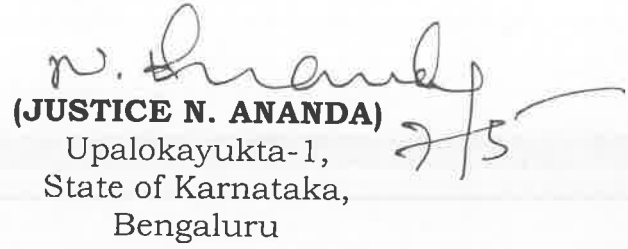 N. Ananda
(JUSTICE N. ANANDA)
7/5
Upalokayukta-1,
State of Karnataka,
Bengaluru